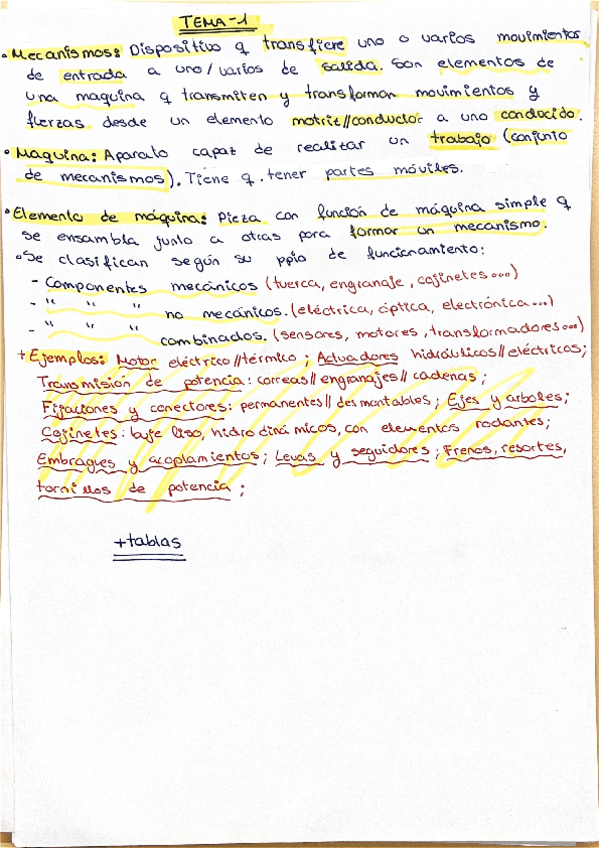 TEMA-1
• Mecanismos: Dispositivo q transfiere uno o varios movimientos
de entrada a uno/varios de salida. Son elementos de
una maquina q transmiten y transforman movimientos y
fuerzas desde un elemento motriz//conductor a uno conducido.
• Maquina: Aparato capaz de realizar un trabajo (conjunto
de mecanismos). Tiene q. tener partes móviles.
• Elemento de máquina: Pieza con función de máquina simple q
se ensambla junto a otras para formar un mecanismo.
• Se clasifican según su ppio de funcionamiento:
- Componentes mecánicos (tuerca, engranaje, cojinetes...)
- " " " no mecánicos. (eléctrica, óptica, electrónica...)
- " " " combinados. (sensores, motores, transformadores...)
+ Ejemplos: Motor eléctrico//térmico; Actuadores hidráulicos//eléctricos;
Transmisión de potencia: correas//engranajes//cadenas;
Fijaciones y conectores: permanentes//desmontables; Ejes y arboles;
Cojinetes: buje liso, hidrodinámicos, con elementos rodantes;
Embragues y acoplamientos; Levas y seguidores; Frenos, resortes,
tornillos de potencia;
+tablas